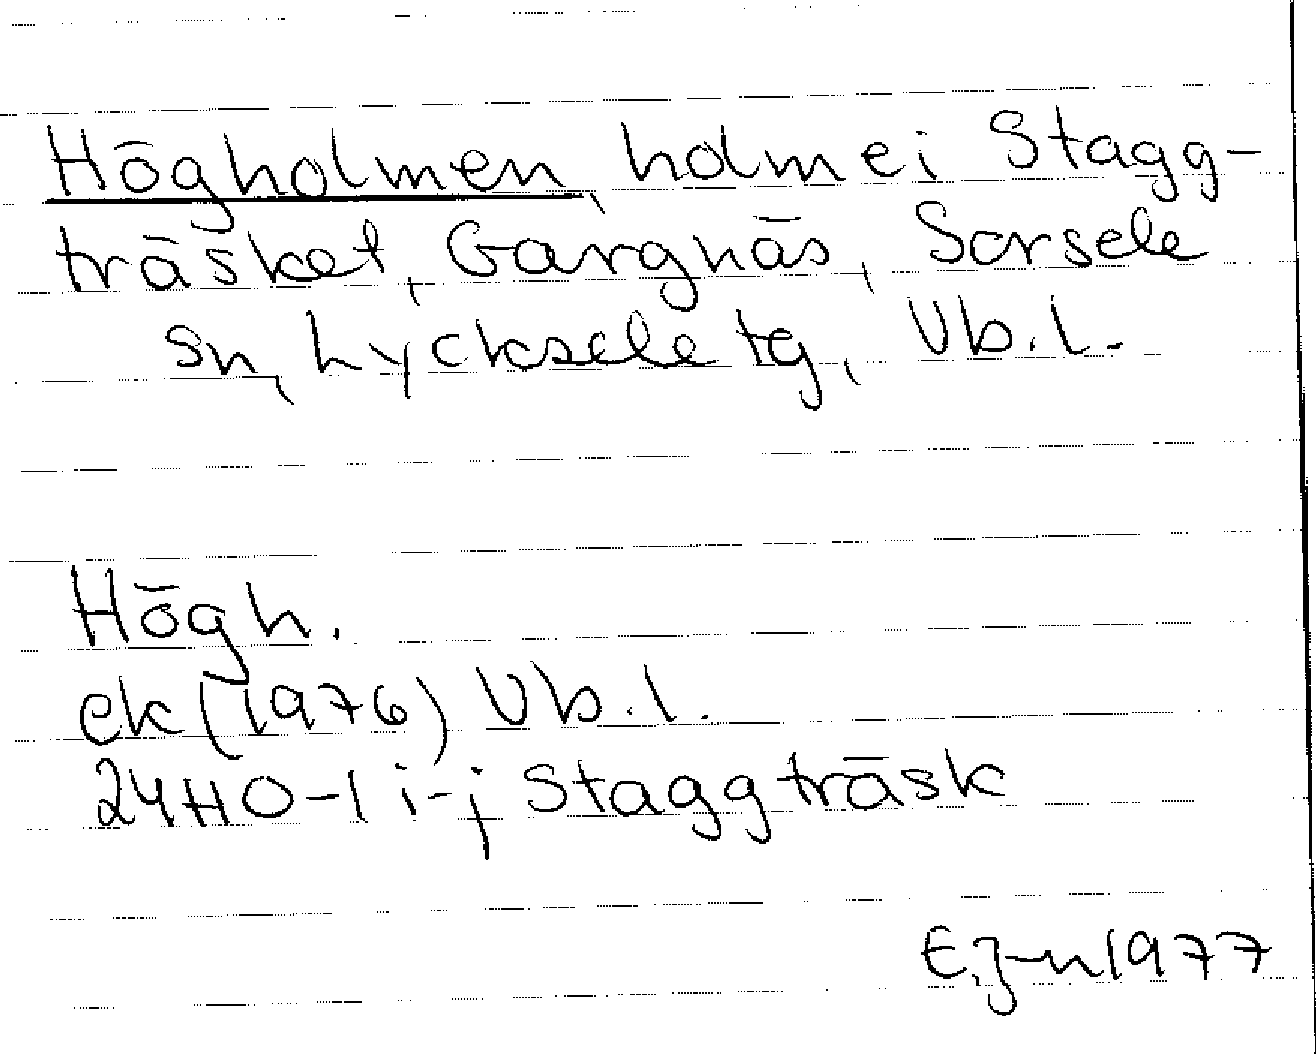 Högholmen, holme i Stagg-
träsket, Gargnäs, Sorsele
sn, Lycksele tg, Vb.l.
Högh.
ek (1976) Vb.l.
24H 0-1 i-j Staggträsk
E.J-n 1977